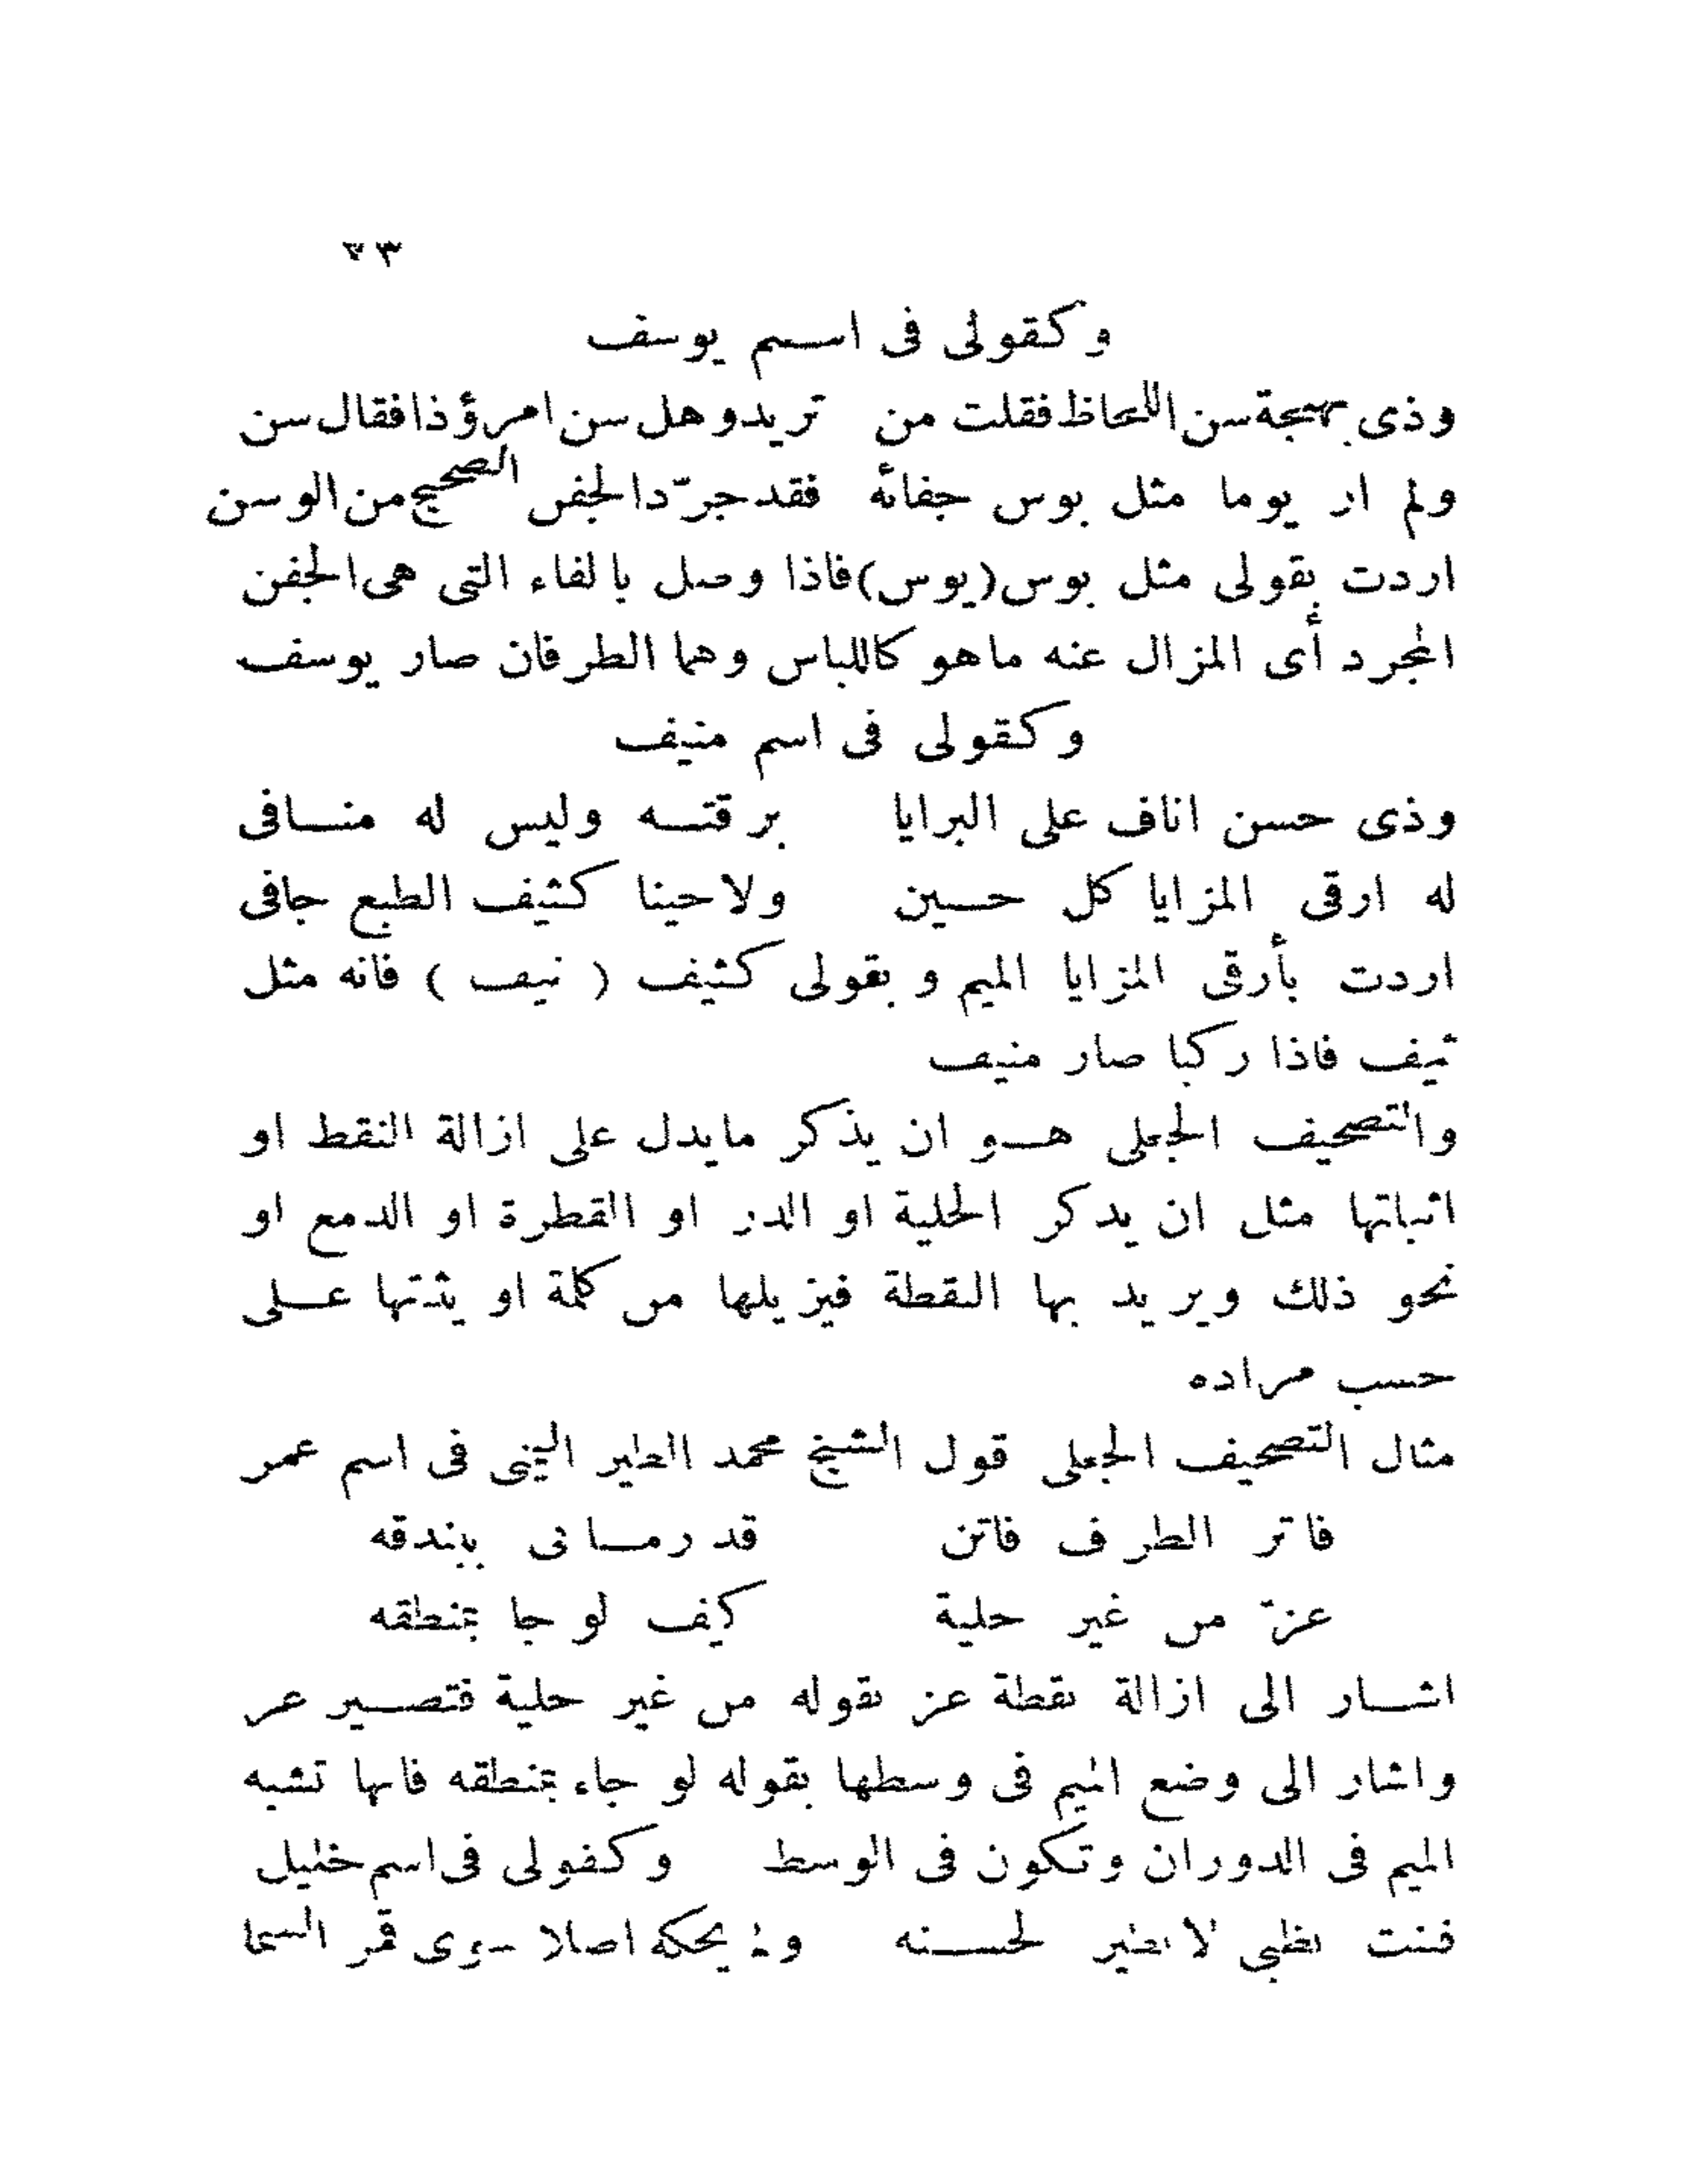 وكقولى فى اسم يوسف
وذى بهجة سن اللحاظ فقلت من تريد وهل سن امرؤ ذا فقال سن
ولم ار يوما مثل بوس جفائه فقد جرّدا لجفن الصحيح من الوسن
اردت بقولى مثل بوس (يوس) فاذا وصل بالفاء التى هى الجفن
المجرد أى المزال عنه ماهو كاللباس وهما الطرفان صار يوسف
وكقولى فى اسم منيف
وذى حسن اناف على البرايا برقته وليس له منافى
له ارقى المزايا كل حسين ولا حينا كثيف الطبع جافى
اردت بأرقى المزايا الميم وبقولى كثيف ( نيف ) فانه مثل
ثيف فاذا ركبا صار منيف
والتصحيف الجعلى هو ان يذكر مايدل على ازالة النقط او
اثباتها مثل ان يذكر الحلية او الدر او القطرة او الدمع او
نحو ذلك ويريد بها النقطة فيزيلها من كلمة او يثبتها على
حسب مراده
مثال التصحيف الجعلى قول الشيخ محمد الطير اليمنى فى اسم عمر
فاتر الطرف فاتن قد رمانى ببندقه
عزّ من غير حلية كيف لو جا بمنطقه
اشار الى ازالة نقطة عز بقوله من غير حلية فتصير عر
واشار الى وضع الميم فى وسطها بقوله لو جاء بمنطقه فانها تشبه
الميم فى الدوران وتكون فى الوسط وكقولى فى اسم خليل
فتنت بظبى لا نظير لحسنه ولم يحكه اصلا سوى قمر السما